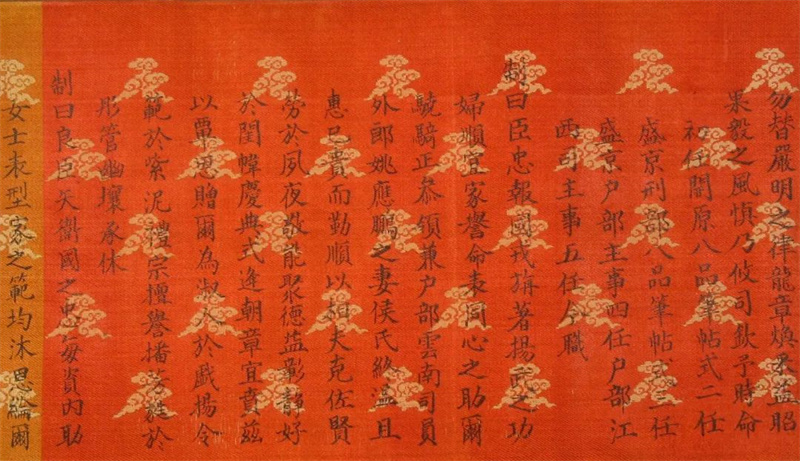 勿替嚴明之律龍章煥采益昭
果毅之風慎乃攸司欽予時命
初任開原八品筆帖式二任
盛京刑部八品筆帖式三任
盛京户部主事四任户部江
西司主事五任今職
制曰臣忠報國戎旃著揚武之功
婦順宜家譽命表同心之助爾
驍騎正叅領兼户部雲南司員
外郎姚應鵬之妻侯氏終溫且
惠已貴而勤順以相夫克佐賢
勞於夙夜敬能聚德益彰靜好
於閨幃慶典式逢朝章宜賁兹
以覃恩贈爾為淑人於戲揚令
範於紫泥禮宗擅譽播芳蕤於
彤管幽壤承休
制曰良臣矢衛國之忠每資內助
女士表型家之範均沐恩綸爾